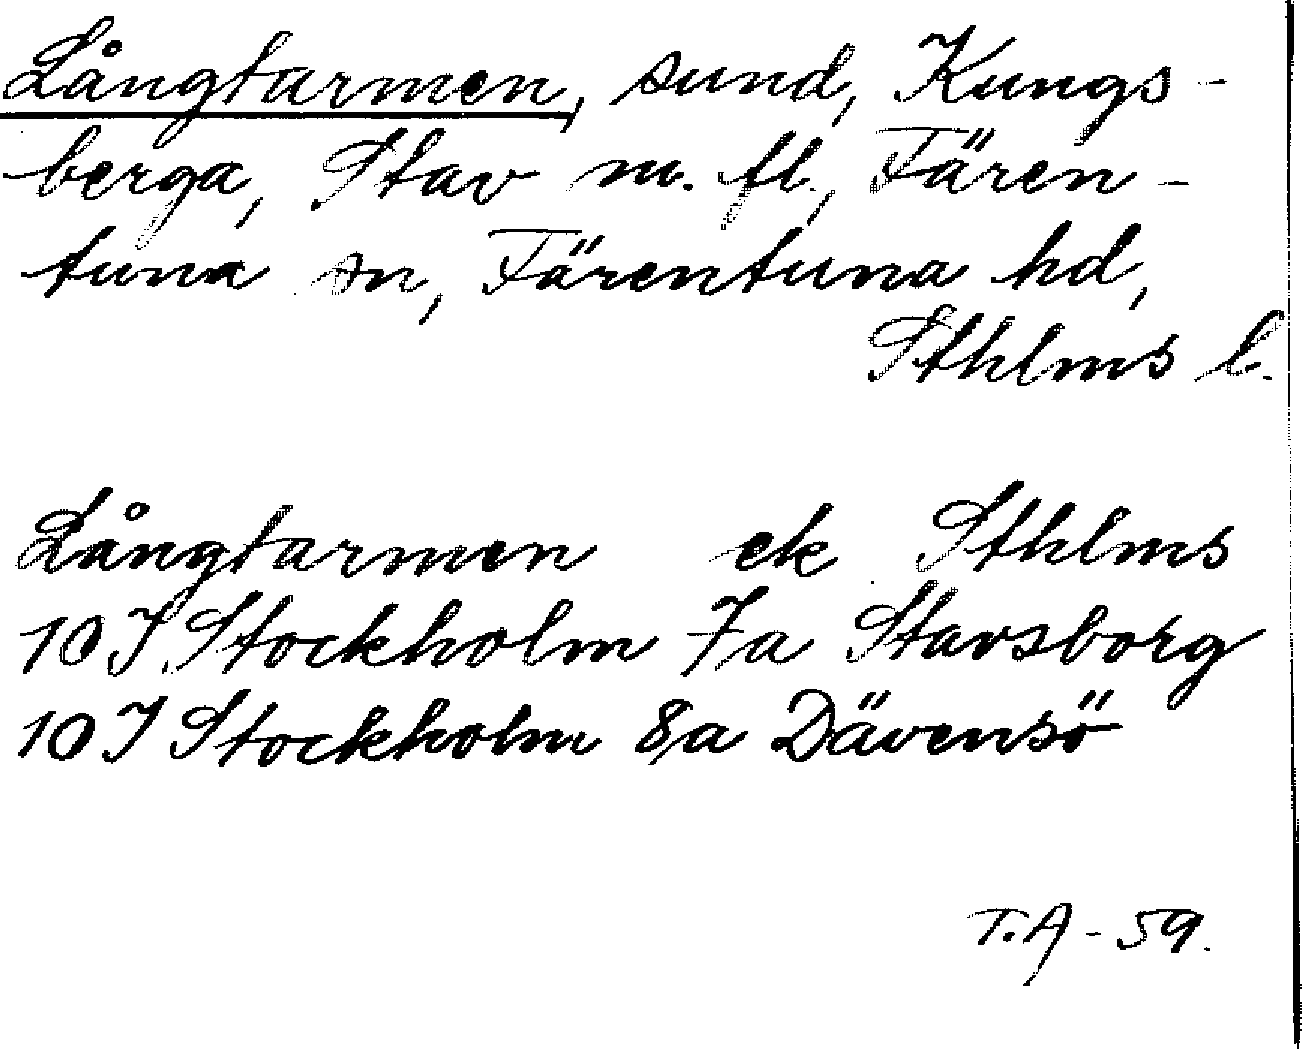 Långtarmen, sund, Kungs-
berga, Stav m. fl., Fären-
tuna sn, Färentuna hd,
Sthlms l.
Långtarmen ek Sthlms
10I Stockholm 7a Stavsborg
10I Stockholm 8a Dävensö
T.A - 59.